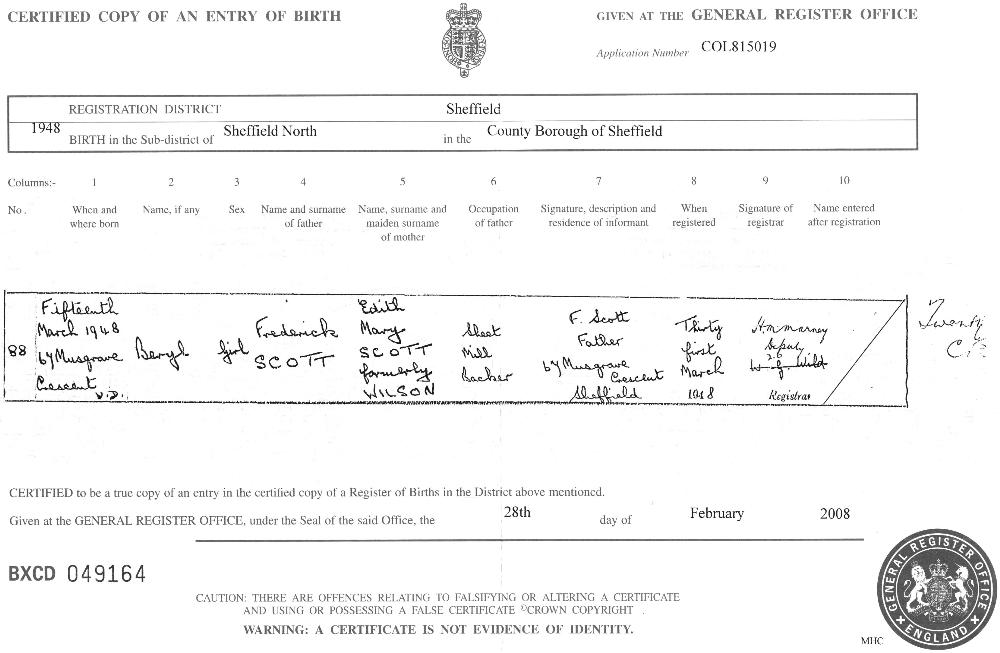 CERTIFIED COPY OF AN ENTRY OF BIRTH
GIVEN AT THE GENERAL REGISTER OFFICE
Application Number COL815019
REGISTRATION DISTRICT Sheffield
1948 BIRTH in the Sub-district of Sheffield North in the County Borough of Sheffield
Columns:- 1 2 3 4 5 6 7 8 9 10
No. When and where born Name, if any Sex Name and surname of father Name, surname and maiden surname of mother Occupation of father Signature, description and residence of informant When registered Signature of registrar Name entered after registration
88
Fifteenth
March 1948
67 Musgrave
Crescent
U.D.
Beryl
Girl
Frederick
SCOTT
Edith
Mary
SCOTT
formerly
WILSON
Sheet
Mill
Backer
F. Scott
Father
67 Musgrave
Crescent
Sheffield
Thirty
first
March
1948
Deputy
Registrar
Twenty
CERTIFIED to be a true copy of an entry in the certified copy of a Register of Births in the District above mentioned.
Given at the GENERAL REGISTER OFFICE, under the Seal of the said Office, the 28th day of February 2008
BXCD 049164
CAUTION: THERE ARE OFFENCES RELATING TO FALSIFYING OR ALTERING A CERTIFICATE
AND USING OR POSSESSING A FALSE CERTIFICATE ©CROWN COPYRIGHT
WARNING: A CERTIFICATE IS NOT EVIDENCE OF IDENTITY.
GENERAL REGISTER OFFICE
ENGLAND
MHC